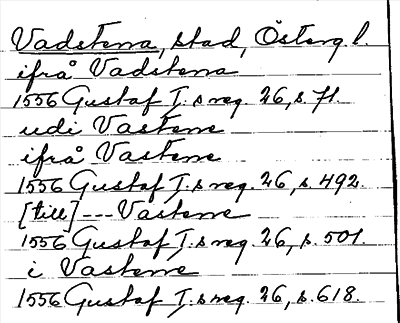 Vadstena, stad, Österg l.
ifrå Vadstena
1556 Gustaf I:s reg. 26, s. 71.
udi Vastene
ifrå Vastene
1556 Gustaf I:s reg. 26, s. 492.
[till] --- Vastene
1556 Gustaf I:s reg. 26, s. 501.
i Vastene
1556 Gustaf I:s reg. 26, s. 618.